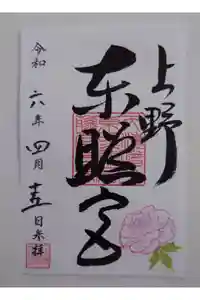 上野
東照宮
令和六年四月十五日参拝